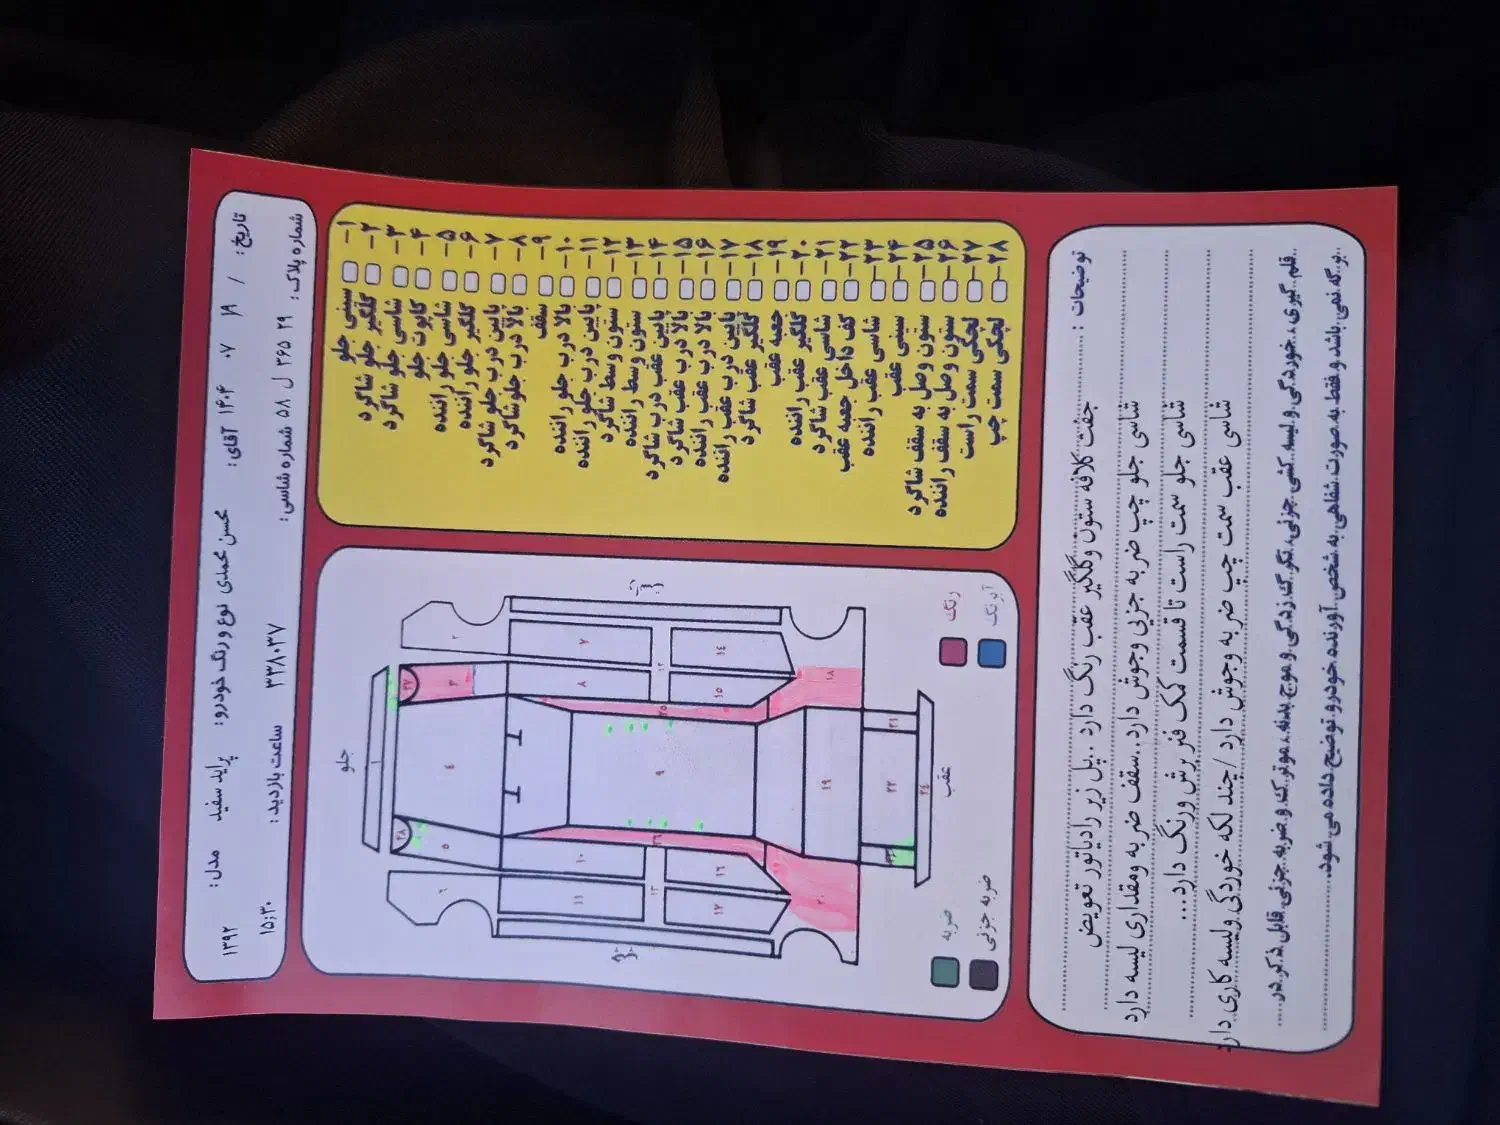 تاریخ: / ۱۴۰۴ ۰۷ ۱۹ آقای: محسن محمدی نوع و رنگ خودرو: پراید سفید مدل: ۱۳۹۲
شماره پلاک: ۲۹ ۳۶۵ ل ۵۸ شماره شاسی: ۳۳۸۰۳۷ ساعت بازدید: ۱۵:۳۰
۱- سینی جلو
۲- گلگیر جلو شاگرد
۳- شاسی جلو شاگرد
۴- کاپوت جلو
۵- شاسی جلو راننده
۶- گلگیر جلو راننده
۷- پایین درب جلو شاگرد
۸- بالا درب جلو شاگرد
۹- سقف
۱۰- بالا درب جلو راننده
۱۱- پایین درب جلو راننده
۱۲- ستون وسط شاگرد
۱۳- ستون وسط راننده
۱۴- پایین عقب درب شاگرد
۱۵- بالا درب عقب شاگرد
۱۶- بالا درب عقب راننده
۱۷- پایین درب عقب راننده
۱۸- گلگیر عقب شاگرد
۱۹- جعبه عقب
۲۰- گلگیر عقب راننده
۲۱- شاسی عقب شاگرد
۲۲- کف داخل جعبه عقب
۲۳- شاسی عقب راننده
۲۴- سینی عقب
۲۵- ستون وصل به سقف شاگرد
۲۶- ستون وصل به سقف راننده
۲۷- لچکی سمت راست
۲۸- لچکی سمت چپ
جلو
۱
۲
۳
۲۷
۴
۲۸
۵
۶
۷
۸
۱۲
۱۴
۱۵
۲۵
۱۸
۹
۱۹
۲۱
۲۲
۲۴
۱۰
۱۱
۱۳
۱۶
۱۲
۲۶
۲۰
۲۳
عقب
رنگ
آبرنگ
ضربه
ضربه جزئی
توضیحات :
جفت کلافه ستون وگلگیر عقب رنگ دارد ..پل زیر رادیاتور تعویض
شاسی جلو چپ ضربه جزیی وجوش دارد..سقف ضربه ومقداری لیسه دارد
شاسی جلو سمت راست تا قسمت کمک فنر برش ورنگ دارد...
شاسی عقب سمت چپ ضربه وجوش دارد /چند لکه خوردگی ولیسه کاری دارد
قلم گیری، خوردگی و لیسه کشی جزئی، تگرگ زدگی و موج بدنه، موترک و ضربه جزئی قابل ذکر در
برگه نمی باشد و فقط به صورت شفاهی به شخص آورنده خودرو توضیح داده می شود.